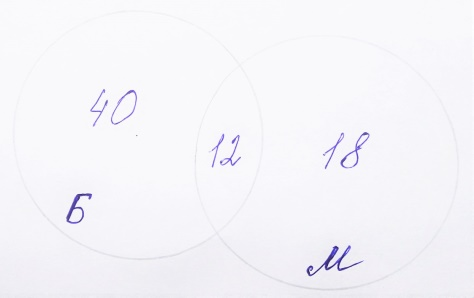 40
12
18
Б
М